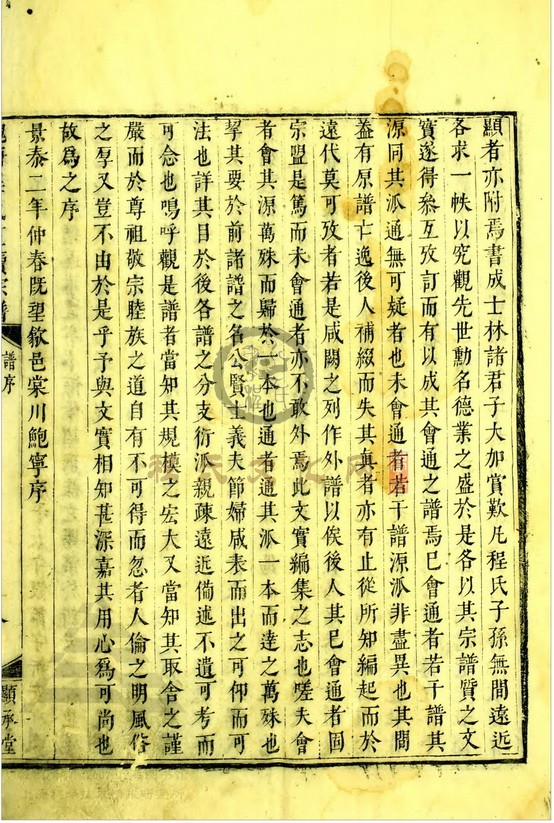 顯者亦附焉書成士林諸君子大加賞歎凡程氏子孫無間遠近
各求一帙以究觀先世勳名德業之盛於是各以其宗譜質之文
實遂得叅互攷訂而有以成其會通之譜焉巳會通者若干譜其
源同其派通無可疑者也未會通者若干譜源派非盡異也其間
葢有原譜亡逸後人補綴而失其眞者亦有止從所知編起而於
遠代莫可攷者若是咸闕之列作外譜以俟後人其巳會通者固
宗盟是篤而未會通者亦不敢外焉此文實編集之志也嗟夫會
者會其源萬殊而歸於一本也通者通其派一本而達之萬殊也
挈其要於前諸譜之名公賢士義夫節婦咸表而出之可仰而可
法也詳其目於後各譜之分支衍派親疎遠近備述不遺可考而
可念也嗚呼觀是譜者當知其規模之宏大又當知其取舍之謹
嚴而於尊祖敬宗睦族之道自有不可得而忽者人倫之明風俗
之厚又豈不由於是乎予與文實相知甚深嘉其用心爲可尚也
故爲之序
景泰二年仲春既望歙邑棠川鮑寧序
譜序
顯承堂